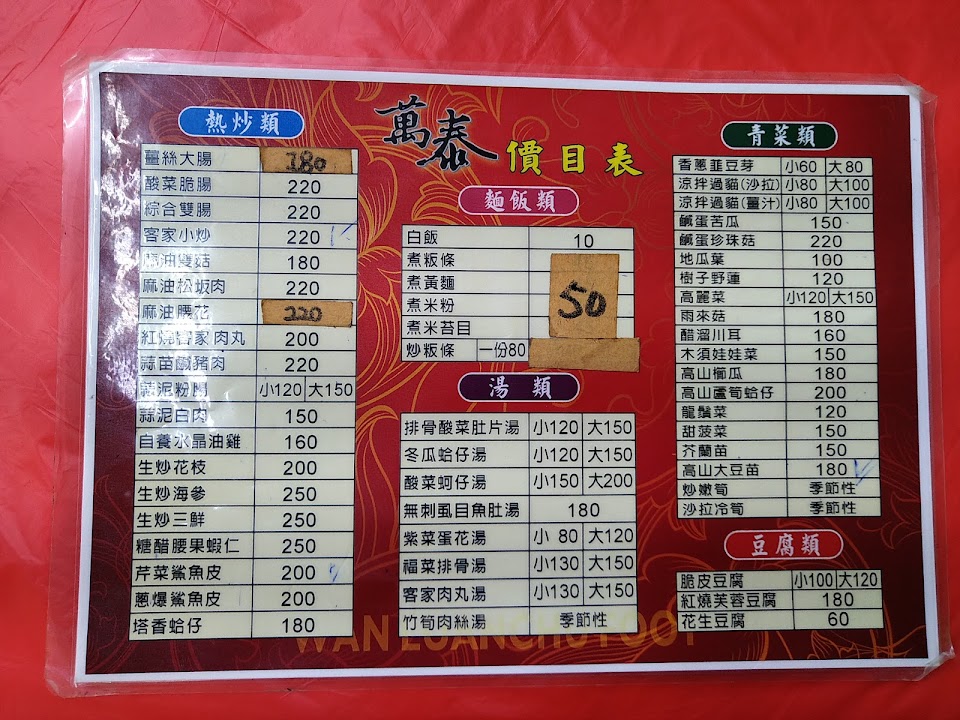 萬泰 價目表
熱炒類
薑絲大腸 180
酸菜脆腸 220
綜合雙腸 220
客家小炒 220
麻油雙菇 180
麻油松坂肉 220
麻油腰花 220
紅燒客家肉丸 200
蒜苗鹹豬肉 220
蒜泥粉腸 小120 大150
蒜泥白肉 150
自養水晶油雞 160
生炒花枝 200
生炒海參 250
生炒三鮮 250
糖醋腰果蝦仁 250
芹菜鯊魚皮 200
蔥爆鯊魚皮 200
塔香蛤仔 180
麵飯類
白飯 10
煮粄條
煮黃麵
煮米粉
煮米苔目
50
炒粄條 一份80
湯類
排骨酸菜肚片湯 小120 大150
冬瓜蛤仔湯 小120 大150
酸菜蚵仔湯 小150 大200
無刺虱目魚肚湯 180
紫菜蛋花湯 小 80 大120
福菜排骨湯 小130 大150
客家肉丸湯 小130 大150
竹筍肉絲湯 季節性
青菜類
香蔥韮豆芽 小60 大80
涼拌過貓(沙拉) 小80 大100
涼拌過貓(薑汁) 小80 大100
鹹蛋苦瓜 150
鹹蛋珍珠菇 220
地瓜葉 100
樹子野蓮 120
高麗菜 小120 大150
雨來菇 180
醋溜川耳 160
木須娃娃菜 150
高山櫛瓜 180
高山蘆筍蛤仔 200
龍鬚菜 120
甜菠菜 150
芥蘭苗 150
高山大豆苗 180
炒嫩筍 季節性
沙拉冷筍 季節性
豆腐類
脆皮豆腐 小100 大120
紅燒芙蓉豆腐 180
花生豆腐 60